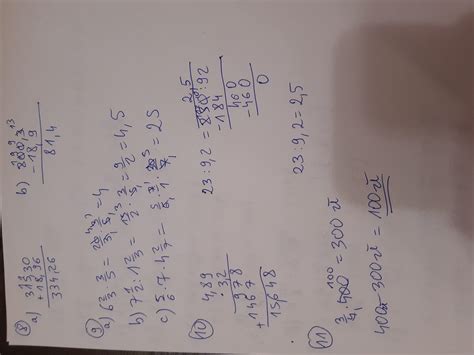 8)
a) 315,30
+ 18,96
334,26
b) 100,3
- 18,9
81,4
9)
a) 6 2/3 · 3/5 = 20/3 · 3/5 = 4
b) 7 1/2 : 1 2/3 = 15/2 · 3/5 = 9/2 = 4,5
c) 5/6 · 7 · 4 2/7 = 5/6 · 7/1 · 30/7 = 25
10)
4,89
· 3,2
978
+ 1467
15,648
2,5
23:9,2 = 230:92
-184
460
-460
0
23:9,2 = 2,5
11)
3/4 · 400 = 300 zł
400zł - 300 zł = 100 zł